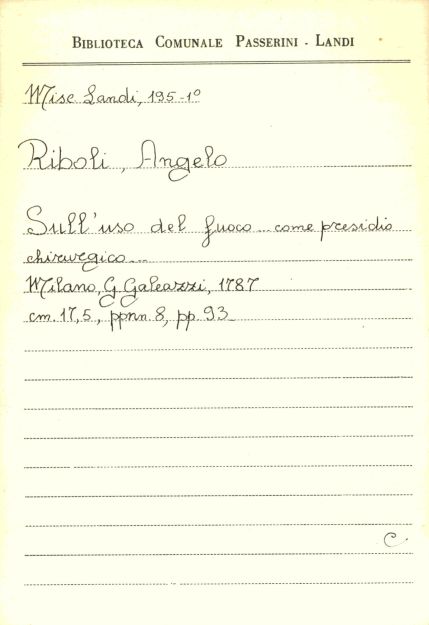 BIBLIOTECA COMUNALE PASSERINI - LANDI
Misc Landi, 195-1º
Riboli, Angelo
Sull'uso del fuoco... come presidio
chirurgico...
Milano, G. Galeazzi, 1787
cm. 17,5, ppnn. 8, pp. 93
C